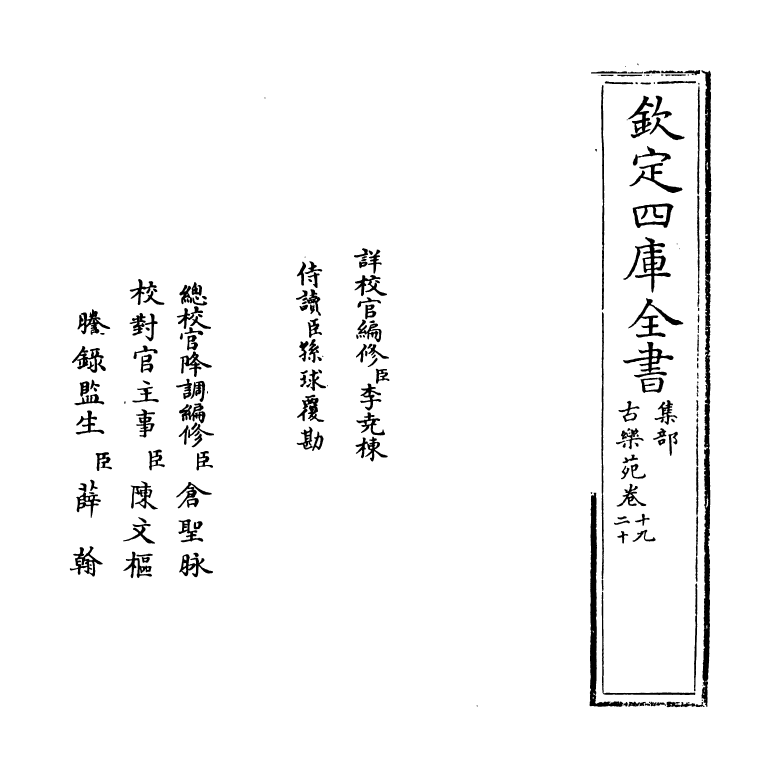 欽定四庫全書
集部
古樂苑卷十九
二十
詳校官編修臣李堯棟
侍讀臣孫球覆勘
總校官降調編修臣倉聖脉
校對官主事臣陳文樞
謄錄監生臣薛翰